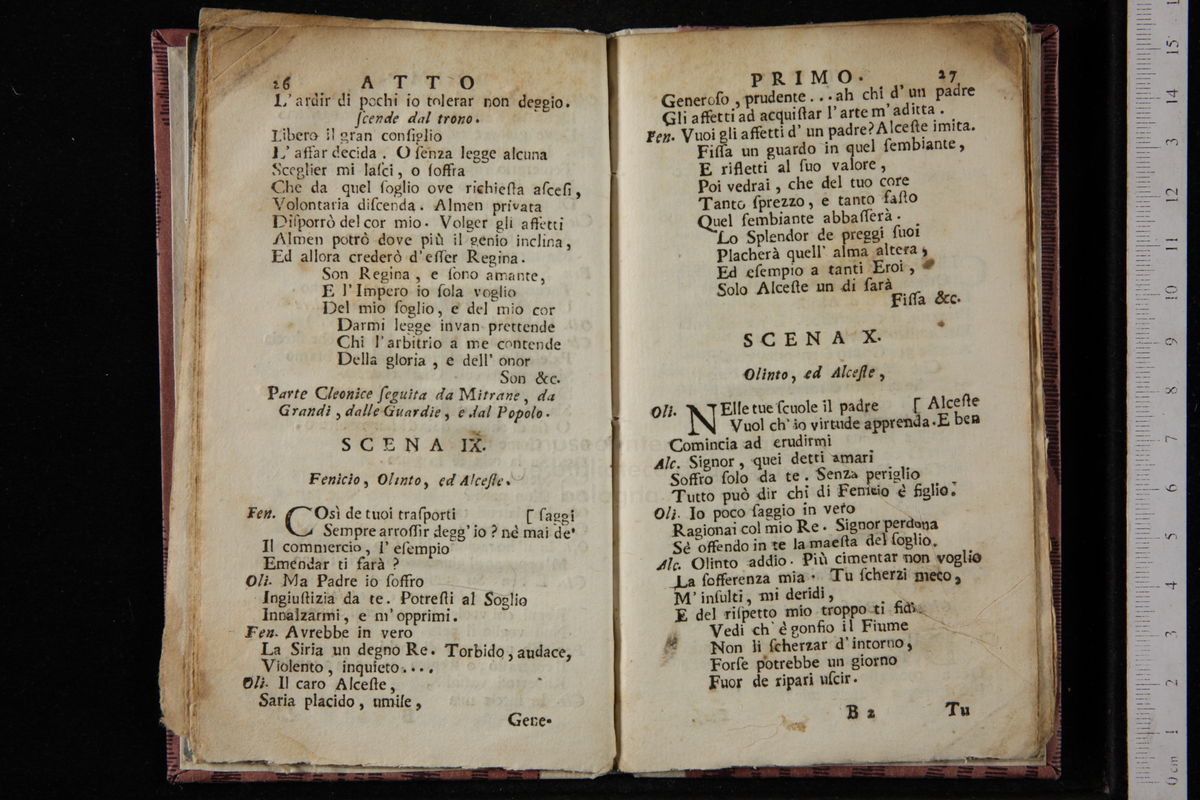 26 ATTO
L' ardir di pochi io tolerar non deggio.
ſcende dal trono.
Libero il gran conſiglio
L' affar decida . O ſenza legge alcuna
Sceglier mi laſci, o ſoffra
Che da quel ſoglio ove richieſta aſceſi,
Volontaria diſcenda. Almen privata
Diſporrò del cor mio. Volger gli affetti
Almen potrò dove più il genio inclina,
Ed allora crederò d' eſſer Regina.
Son Regina, e ſono amante,
E l' Impero io ſola voglio
Del mio ſoglio, e del mio cor
Darmi legge invan prettende
Chi l' arbitrio a me contende
Della gloria, e dell' onor
Son &c.
Parte Cleonice ſeguita da Mitrane, da
Grandi, dalle Guardie, e dal Popolo.
SCENA IX.
Fenicio, Olinto, ed Alceſte.
Fen. COsì de tuoi traſporti [ ſaggi
Sempre arroſſir degg' io ? nè mai de'
Il commercio, l' eſempio
Emendar ti farà ?
Oli. Ma Padre io ſoffro
Ingiuſtizia da te. Potreſti al Soglio
Innalzarmi, e m' opprimi.
Fen. Avrebbe in vero
La Siria un degno Re. Torbido, audace,
Violento, inquieto....
Oli. Il caro Alceſte,
Saria placido, umile,
Gene-
PRIMO. 27
Generoſo, prudente... ah chi d' un padre
Gli affetti ad acquiſtar l' arte m' aditta.
Fen. Vuoi gli affetti d' un padre? Alceſte imita.
Fiſſa un guardo in quel ſembiante,
E rifletti al ſuo valore,
Poi vedrai, che del tuo core
Tanto ſprezzo, e tanto faſto
Quel ſembiante abbaſſerà.
Lo Splendor de preggi ſuoi
Placherà quell' alma altera,
Ed eſempio a tanti Eroi,
Solo Alceſte un di ſarà
Fiſſa &c.
SCENA X.
Olinto, ed Alceſte,
Oli. NElle tue ſcuole il padre [ Alceſte
Vuol ch' io virtude apprenda. E ben
Comincia ad erudirmi
Alc. Signor, quei detti amari
Soffro ſolo da te. Senza periglio
Tutto può dir chi di Fenicio è figlio.
Oli. Io poco ſaggio in vero
Ragionai col mio Re. Signor perdona
Sè offendo in te la maeſta del ſoglio.
Alc. Olinto addio. Più cimentar non voglio
La ſofferenza mia. Tu ſcherzi meco,
M' inſulti, mi deridi,
E del riſpetto mio troppo ti fidi.
Vedi ch' è gonfio il Fiume
Non li ſcherzar d' intorno,
Forſe potrebbe un giorno
Fuor de ripari uſcir.
B 2 Tu
0 cm 1 2 3 4 5 6 7 8 9 10 11 12 13 14 15